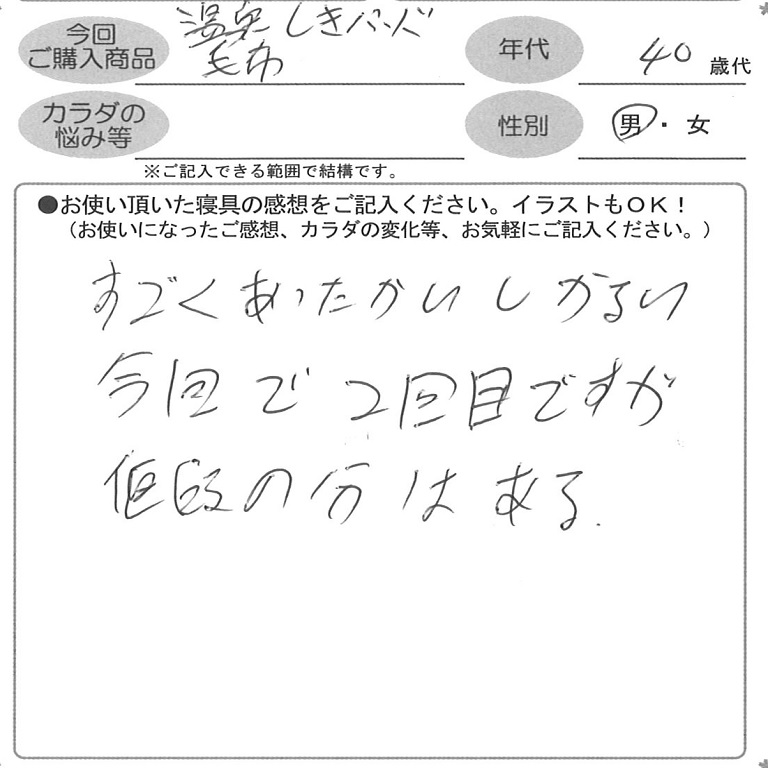 今回
ご購入商品
温泉しきパッド
毛布
年代
40 歳代
カラダの
悩み等
性別
男・女
※ご記入できる範囲で結構です。
●お使い頂いた寝具の感想をご記入ください。イラストもOK！
（お使いになったご感想、カラダの変化等、お気軽にご記入ください。）
すごくあったかいしかるい
今回で2回目ですが
値段の分はある.